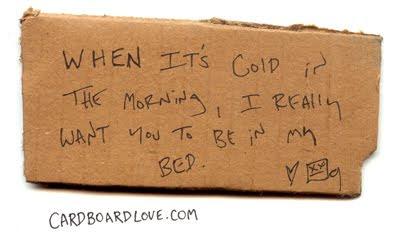 WHEN IT'S COLD in
THE MORNING, I REALLY
WANT YOU TO BE in my
BED.
CARDBOARDLOVE.COM